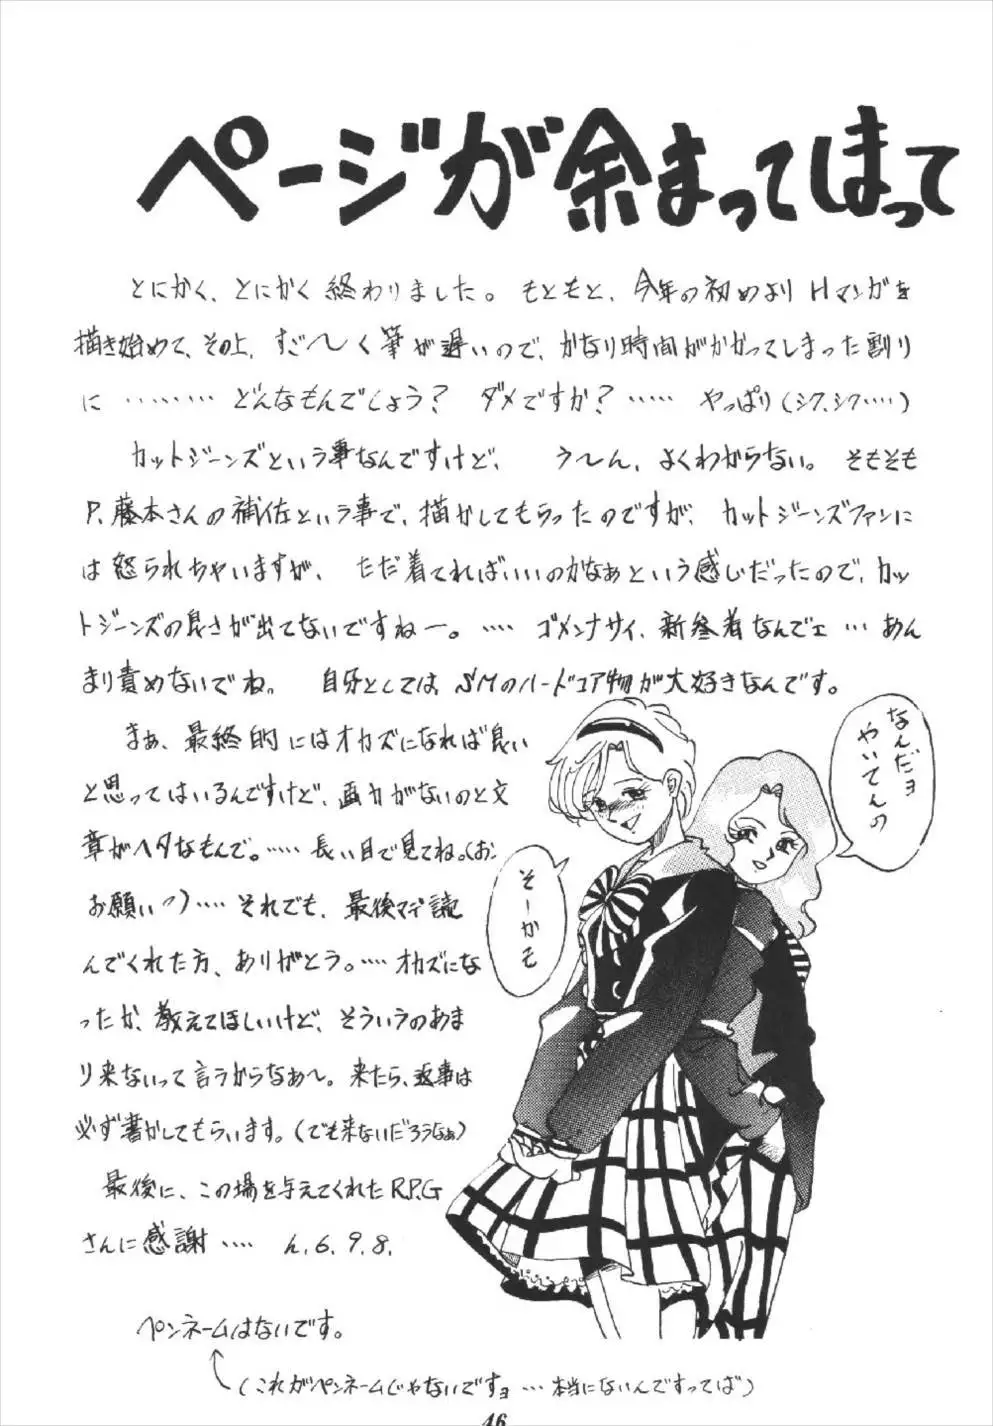 ページが余まってしまって
とにかく、とにかく終わりました。もともと、今年の初めよりHマンガを
描き始めて、その上、すご〜く筆が遅いので、かなり時間がかかってしまった割り
に ……… どんなもんでしょう? ダメですか? ‥‥‥ やっぱり(シク、シク‥‥)
カットジーンズという事なんですけど、 う〜ん、よくわからない。そもそも
P.藤本さんの補佐という事で、描かしてもらったのですが、カットジーンズファンに
は怒られちゃいますが、 ただ着てればいいのかなぁという感じだったので、カッ
トジーンズの良さが出てないですねー。‥‥ ゴメンナサイ、新参者なんでェ … あん
まり責めないでね。 自分としては、SMのハードコア物が大好きなんです。
まぁ、最終的にはオカズになれば良い
と思ってはいるんですけど、画力がないのと文
章がヘタなもんで。‥‥‥ 長い目で見てね。(お
お願いっ)‥‥‥ それでも、最後マデ読
んでくれた方、ありがとう。‥‥ オカズにな
ったか、教えてほしいけど、そういうのあま
り来ないって言うからなぁ〜。来たら、返事は
必ず書かしてもらいます。(でも来ないだろうなぁ)
最後に、この場を与えてくれたR.P.G
さんに感謝 ‥‥ H.6.9.8.
なんだョ
やいてんの
そーかも
ペンネームはないです。
(これがペンネームじゃないですョ … 本当にないんですってば)
46